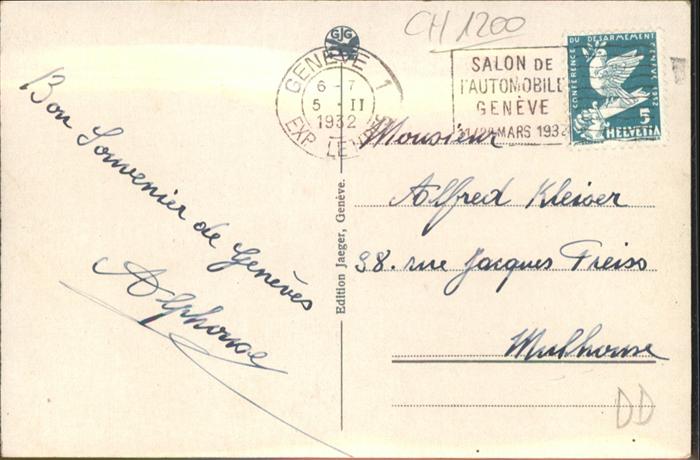 GJG
CH 1200
GENÈVE 1
6 - 7
5 · II
1932
EXP. LE
SALON DE
L'AUTOMOBILE
GENÈVE
11/20 MARS 1932
CONFÉRENCE DU DÉSARMEMENT
GENÈVE 1932
5
HELVETIA
Bon Souvenier de Genèves
Alphonse
Edition Jaeger, Genève.
Monsieur
Alfred Kleiber
38. rue Jacques Preiss
Mulhouse
DD